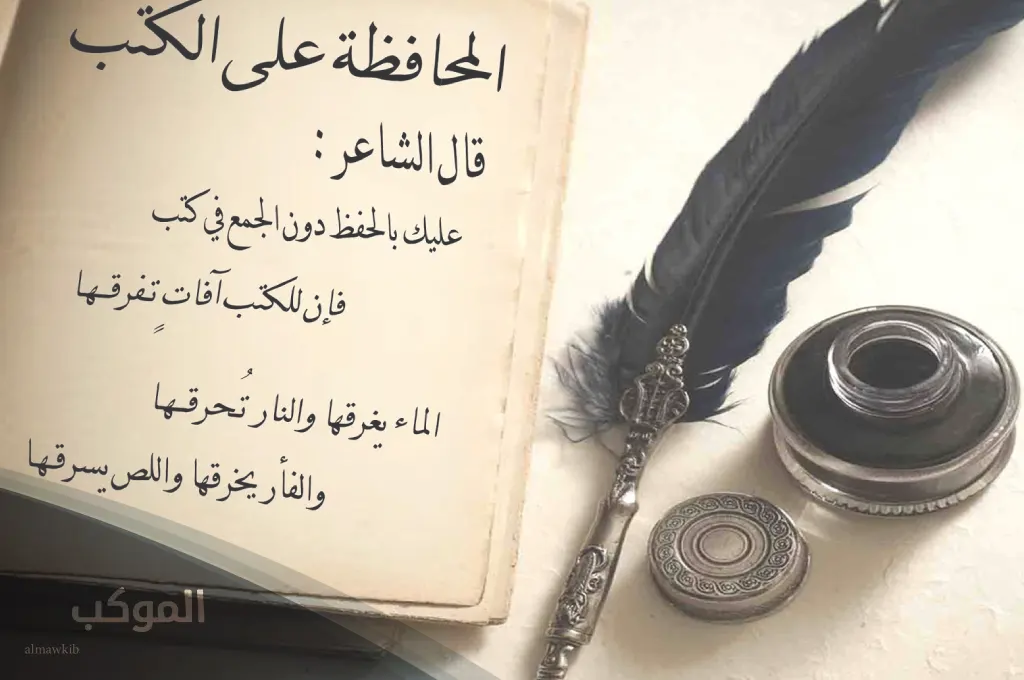 المحافظة على الكتب
قال الشاعر :
عليك بالحفظ دون الجمع في كتب
فإن للكتب آفاتٍ تفرقـها
الماء يغرقها والنار تُحرقـها
والفأر يخرقها واللص يسرقـها
الموكب
almawkib